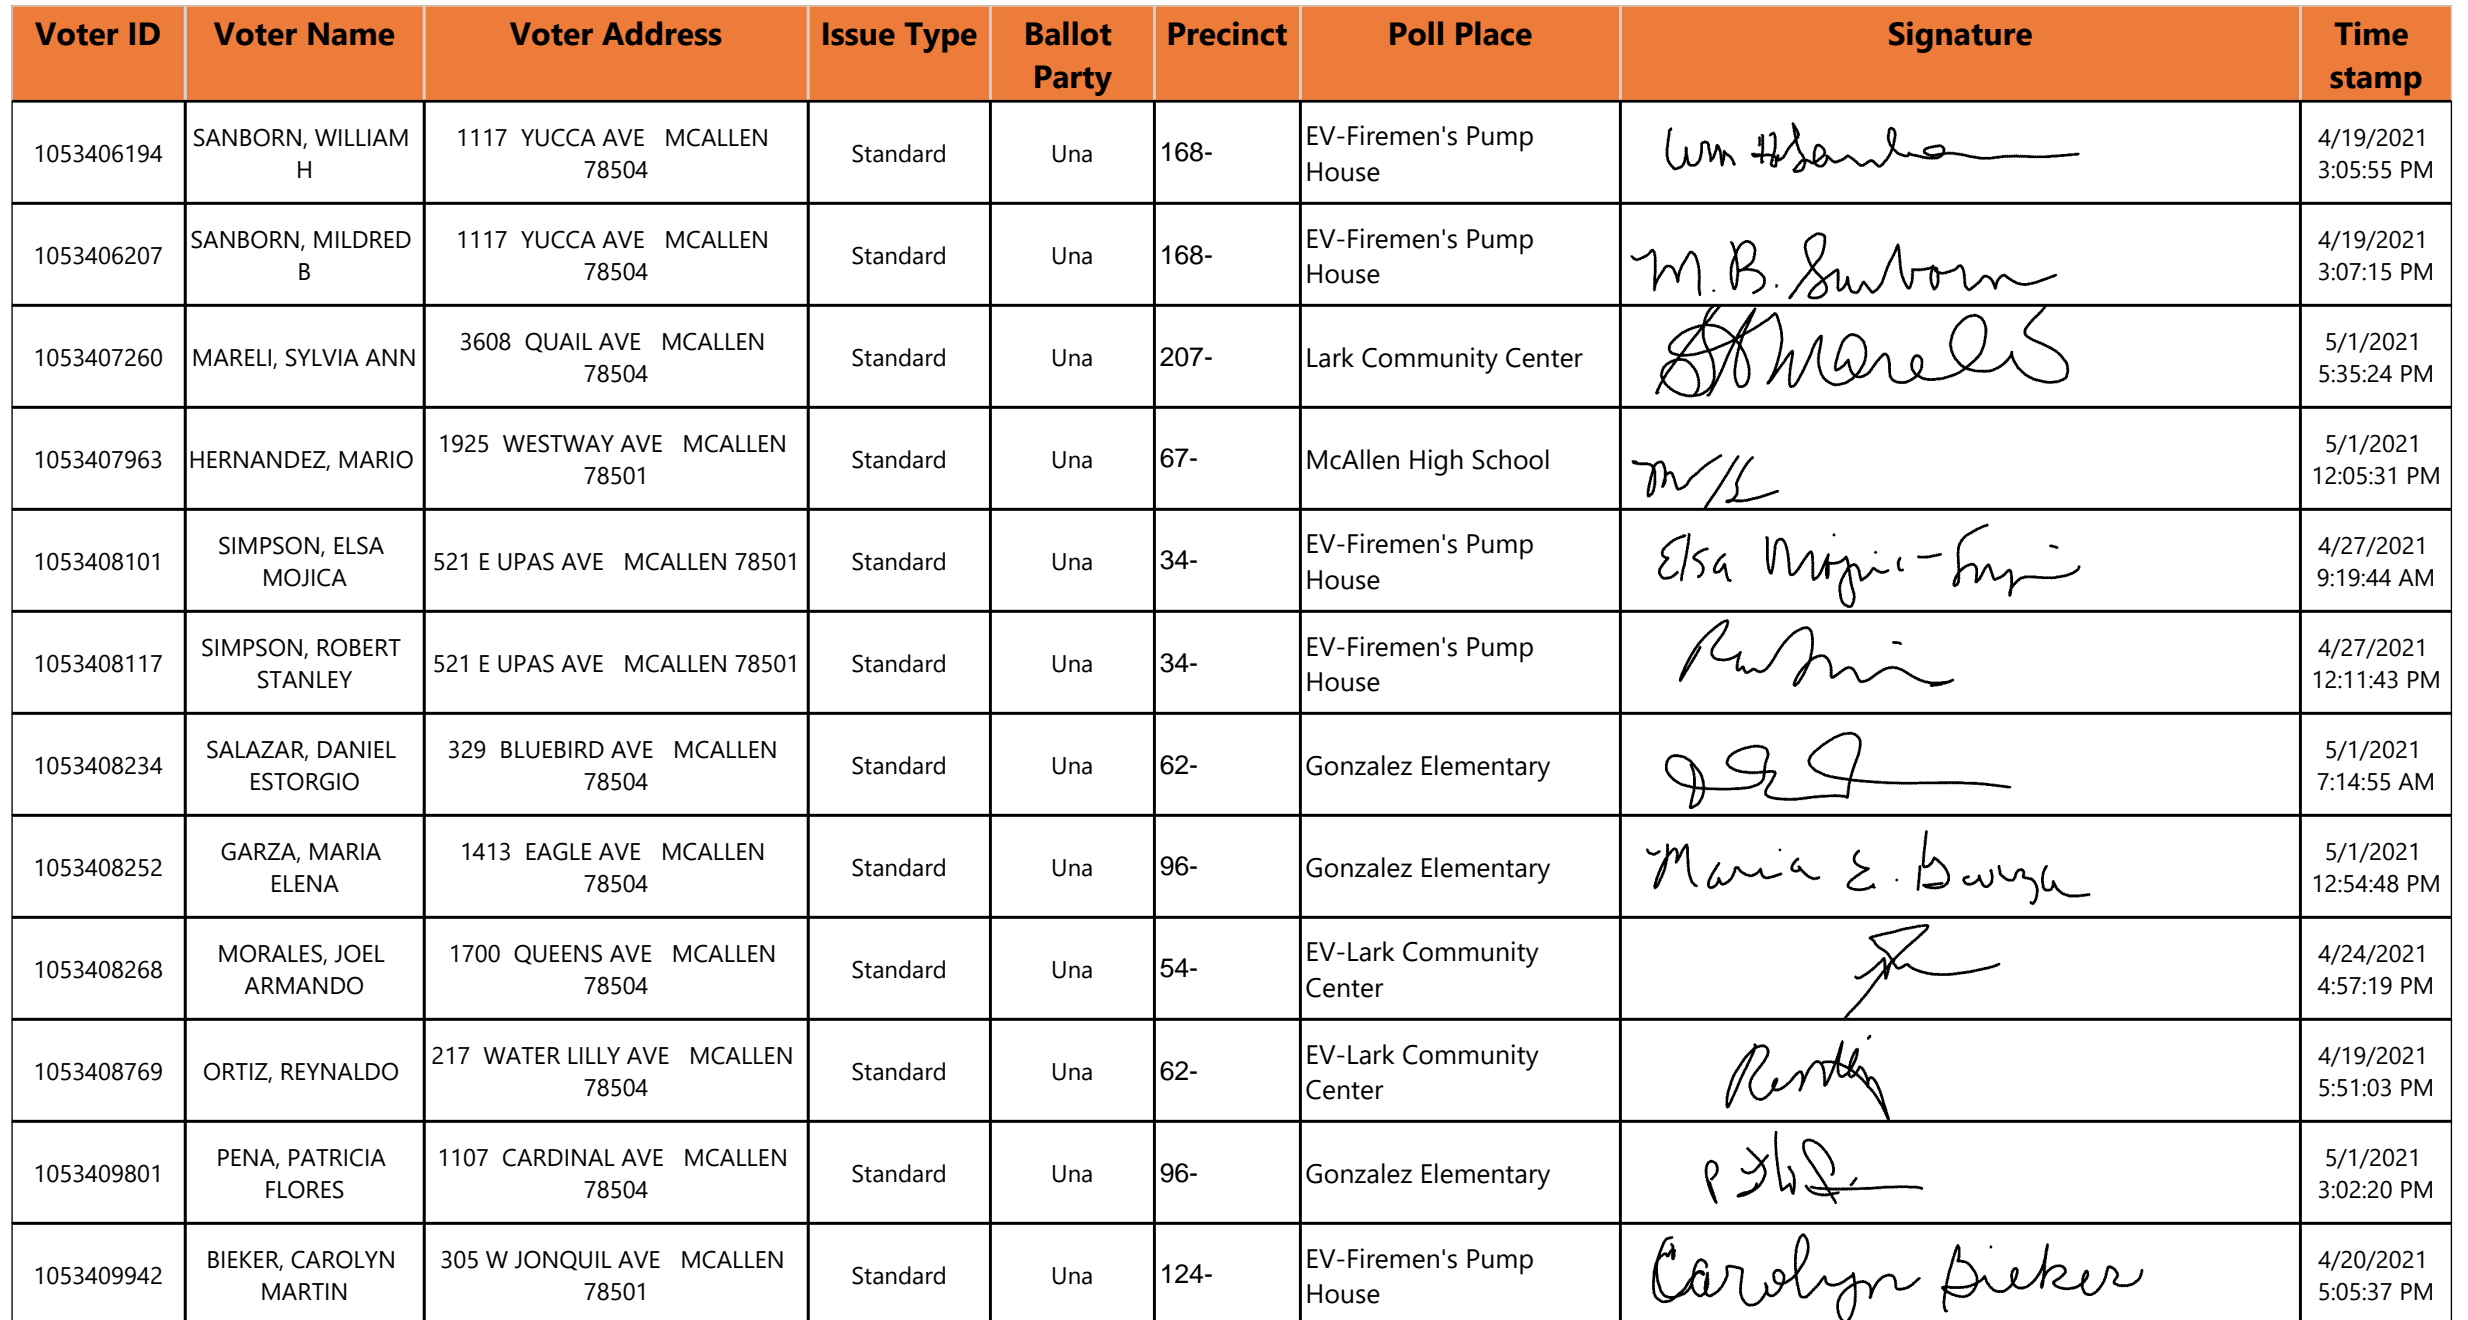 Voter ID Voter Name Voter Address Issue Type Ballot Party Precinct Poll Place Signature Time stamp
1053406194 SANBORN, WILLIAM H 1117 YUCCA AVE MCALLEN 78504 Standard Una 168- EV-Firemen's Pump House Wm H 4/19/2021 3:05:55 PM
1053406207 SANBORN, MILDRED B 1117 YUCCA AVE MCALLEN 78504 Standard Una 168- EV-Firemen's Pump House M. B. Sanborn 4/19/2021 3:07:15 PM
1053407260 MARELI, SYLVIA ANN 3608 QUAIL AVE MCALLEN 78504 Standard Una 207- Lark Community Center Mareli 5/1/2021 5:35:24 PM
1053407963 HERNANDEZ, MARIO 1925 WESTWAY AVE MCALLEN 78501 Standard Una 67- McAllen High School 5/1/2021 12:05:31 PM
1053408101 SIMPSON, ELSA MOJICA 521 E UPAS AVE MCALLEN 78501 Standard Una 34- EV-Firemen's Pump House Elsa 4/27/2021 9:19:44 AM
1053408117 SIMPSON, ROBERT STANLEY 521 E UPAS AVE MCALLEN 78501 Standard Una 34- EV-Firemen's Pump House 4/27/2021 12:11:43 PM
1053408234 SALAZAR, DANIEL ESTORGIO 329 BLUEBIRD AVE MCALLEN 78504 Standard Una 62- Gonzalez Elementary 5/1/2021 7:14:55 AM
1053408252 GARZA, MARIA ELENA 1413 EAGLE AVE MCALLEN 78504 Standard Una 96- Gonzalez Elementary Maria E. Garza 5/1/2021 12:54:48 PM
1053408268 MORALES, JOEL ARMANDO 1700 QUEENS AVE MCALLEN 78504 Standard Una 54- EV-Lark Community Center 4/24/2021 4:57:19 PM
1053408769 ORTIZ, REYNALDO 217 WATER LILLY AVE MCALLEN 78504 Standard Una 62- EV-Lark Community Center 4/19/2021 5:51:03 PM
1053409801 PENA, PATRICIA FLORES 1107 CARDINAL AVE MCALLEN 78504 Standard Una 96- Gonzalez Elementary 5/1/2021 3:02:20 PM
1053409942 BIEKER, CAROLYN MARTIN 305 W JONQUIL AVE MCALLEN 78501 Standard Una 124- EV-Firemen's Pump House Carolyn Bieker 4/20/2021 5:05:37 PM